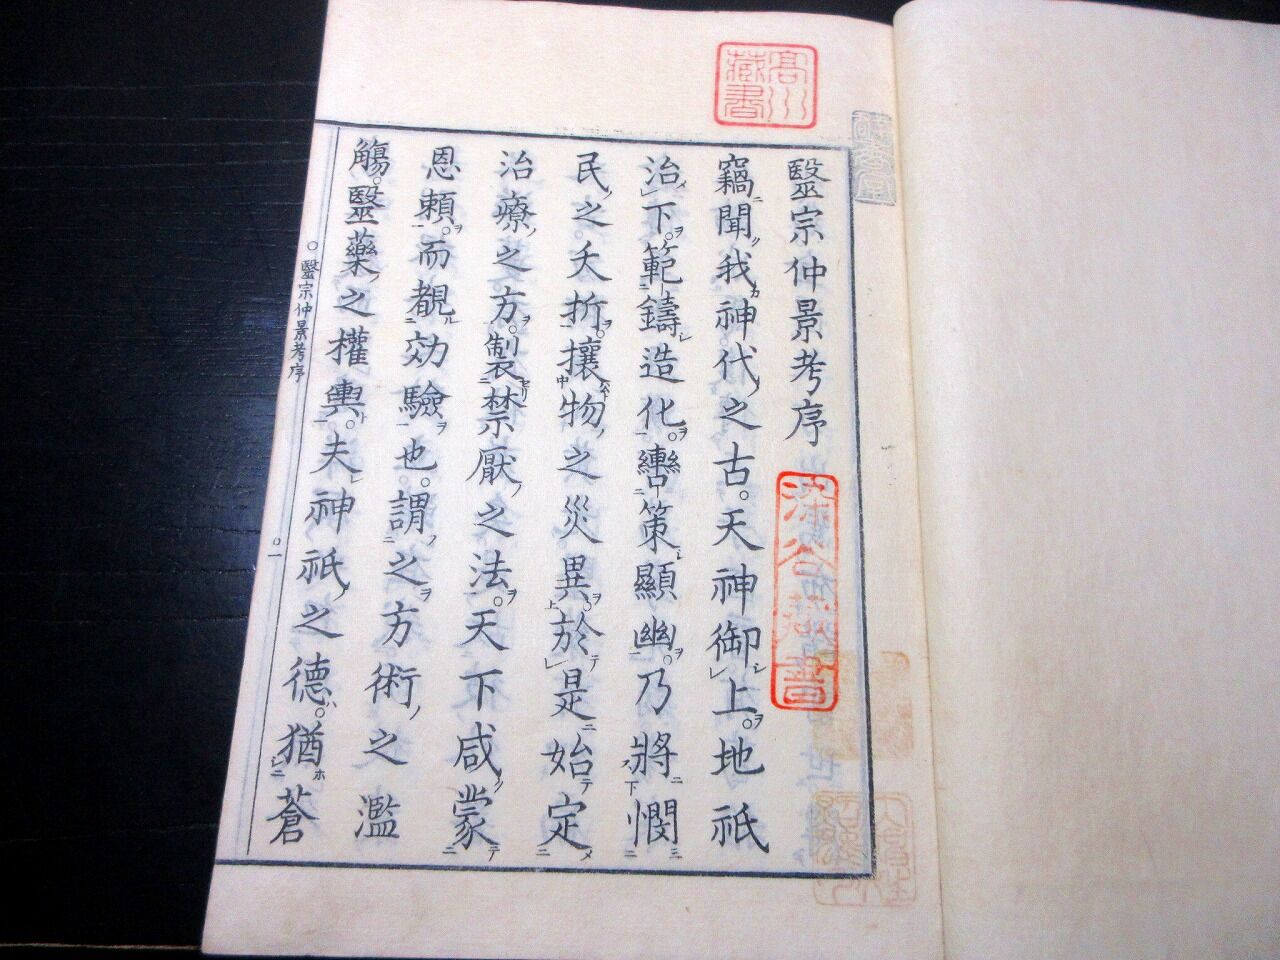 醫宗仲景考序
竊聞我神代之古。天神御上。地祇
治下。範鑄造化。轡策顯幽。乃將憫
民之夭折。攘物之災異。於是始定
治療之方。製禁厭之法。天下咸蒙
恩賴。而覩効驗也。謂之方術之濫
觴。醫藥之權輿。夫神祇之德。猶蒼
○醫宗仲景考序
○一
高川
藏書